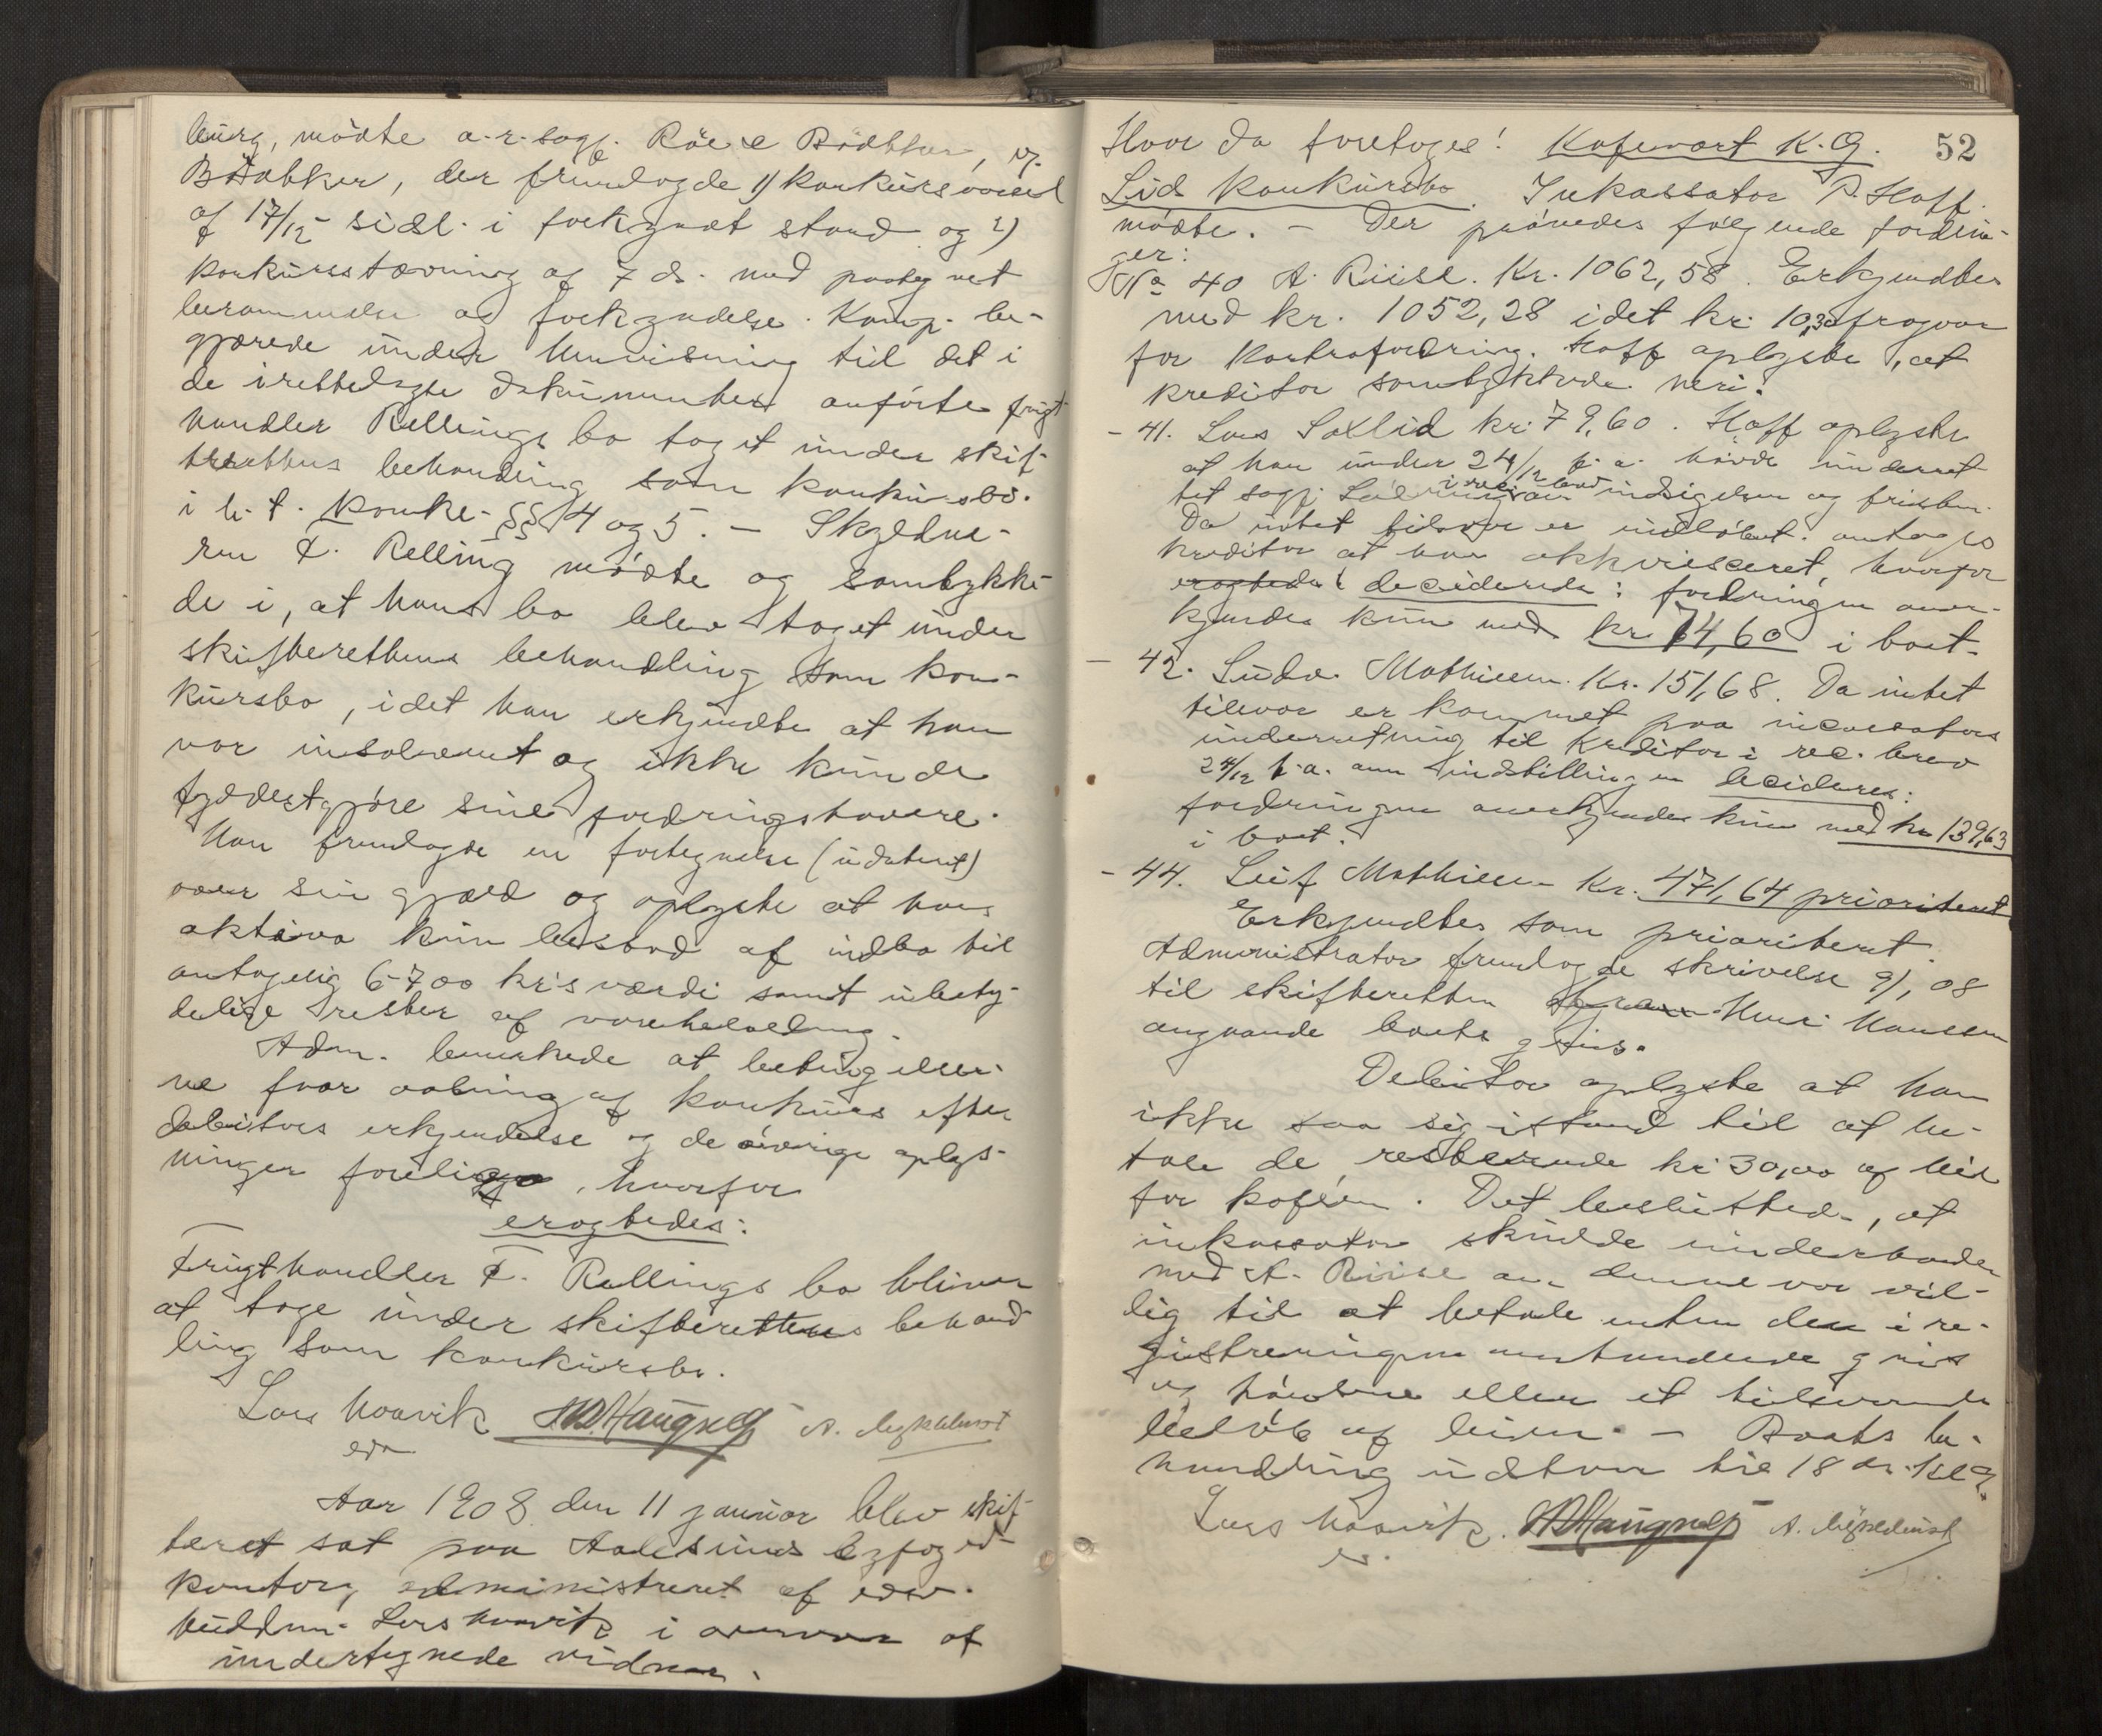 mødte a. r. sagf.
der fremlagde 1) konkursvarsel
af 17/12 sidl. i forkyndt stand og 2)
konkursstævning af 7 ds. med paategnet
berammelse og forkyndelse. Komp. be-
gjærede under henvisning til det i
de irettelagte dokumenter anførte frugt-
handler Rellings bo taget under skif-
terettens behandling som konkursbo.
i h. t. konk. §§ 4 og 5. – Skyldne-
ren Relling mødte og samtykke-
de i, at hans bo blev taget under
skifterettens behandling som kon-
kursbo, idet han erkjendte at han
var insolvent og ikke kunde
fyldestgjøre sine fordringshavere.
Han fremlagde en fortegnelse (udatert)
over sin gjæld og oplyste at hans
aktiva kun bestod af indbo til
antagelig 6-700 kr's værdi samt ubety-
delige rester af varebeholdning.
Adm. bemerkede at betingelser-
ne for aabning af konkurs efter
debitors erkjendelse og de øvrige oplys-
ninger foreligger, hvorfor
eragtedes:
Frugthandler Rellings bo bliver
at tage under skifterettens behand
ling som konkursbo.
Lars Haavik
edv
Aar 1908 den 11 januar blev skif-
teret sat paa Aalesunds byfoged-
kontor, administreret af edsv.
fuldm. Lars Haavik i overvær af
undertegnede vidner.
Hvor da foretoges: 52
Lid konkursbo. Inkassator P. Hoff
mødte. – Der prøvedes følgende fordrin-
ger:
No 40 A. Riise. Kr. 1062,58. Erkjendtes
med kr. 1052,28 idet kr. 10,30 fragaar
for kontrafordring. Hoff oplyste, at
kreditor samtykkede heri.
- 41. Lars Saxlid kr. 79,60. Hoff oplyste
at han under 24/12 f. a. havde underret-
tet sagf. i rec. brev om indsigelsen og fristen.
Da intet tilsvar er indløbet antages
kreditor at have akkviesceret, hvorfor
eragtedes decideredes: fordringen aner-
kjendes kun med kr 74,60 i boet.
- 42. Ludv. Mathiesen. Kr. 151,68. Da intet
tilsvar er kommet paa incassators
underretning til kreditor i rec. brev
24/12 f. a. om indstillingen decideres:
fordringen anerkjendes kun med kr 139,63
i boet.
- 44. Leif Mathiesen Kr. 471,64 prioriteret
Erkjendtes som prioriteret.
Administrator fremlagde skrivelse 9/1 08
til skifteretten Hansen
angaaende boets gris.
Debitor oplyste at han
ikke saa sig istand til at be-
tale de resterende kr 30,00 af leie
for kafeen. Det besluttedes, at
inkassator skulde underhandle
med A. Riise om denne var vil-
lig til at betale enten den i re-
gistreringen omhandlede gris
og høns eller et tilsvarende
beløb af leien. – Boets be-
handling udstaar til 18 ds. kl 9.
Lars Haavik.